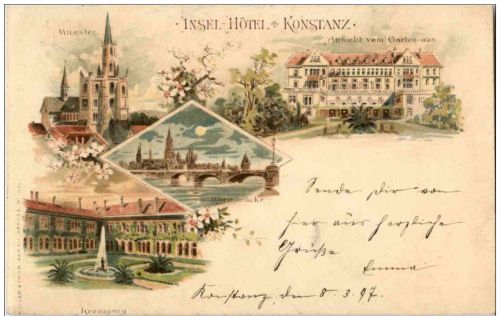 · INSEL-HÔTEL ❖ KONSTANZ ·
Münster
Ansicht vom Garten aus
Rheinbrücke
Kreuzgang
Sende Dir von
hier aus herzliche
Grüße
Emma
Konstanz, den 8. 3. 97.